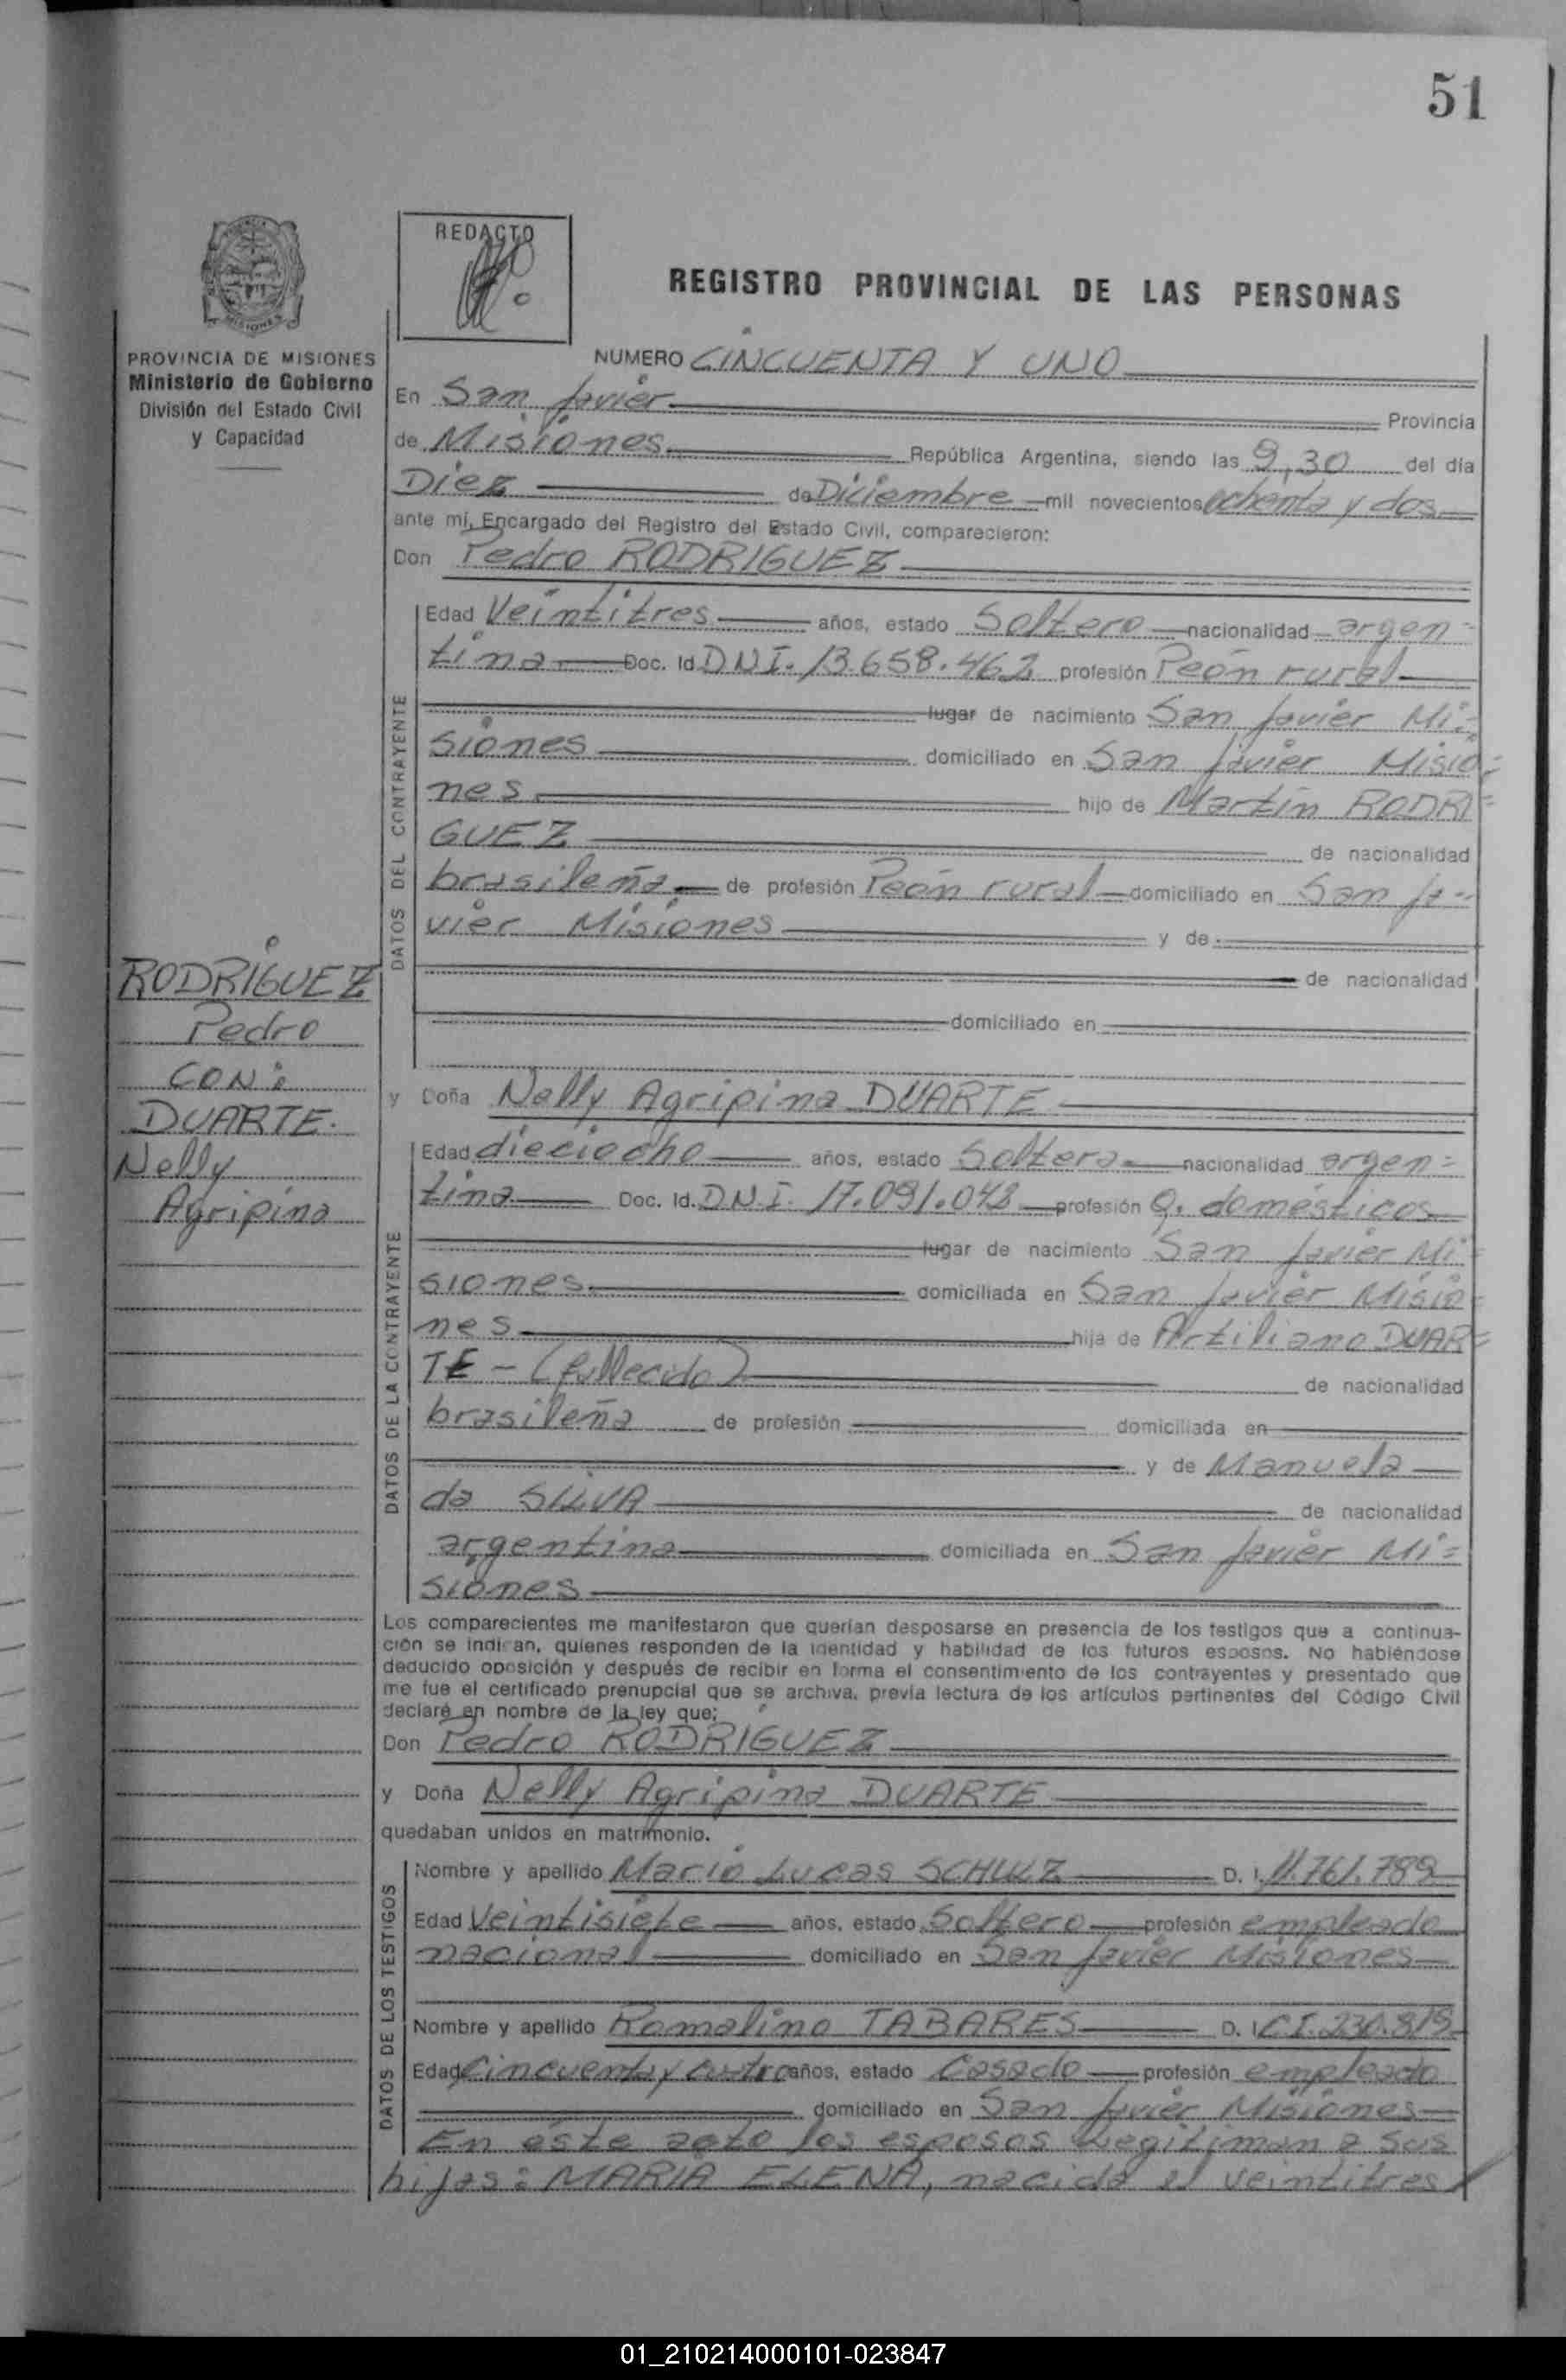 51
REDACTO
REGISTRO PROVINCIAL DE LAS PERSONAS
PROVINCIA DE MISIONES
Ministerio de Gobierno
División del Estado Civil
y Capacidad
NUMERO CINCUENTA Y UNO
En San Javier Provincia
de Misiones República Argentina, siendo las 9,30 del día
Diez de Diciembre mil novecientos ochenta y dos
ante mí, Encargado del Registro del Estado Civil, comparecieron:
Don Pedro RODRIGUEZ
DATOS DEL CONTRAYENTE
Edad Veintitres años, estado Soltero nacionalidad argen=
tina Doc. Id. DNI. 13.658.462 profesión Peón rural
lugar de nacimiento San Javier Mi=
siones domiciliado en San Javier Misio=
nes hijo de Martín RODRI=
GUEZ de nacionalidad
brasileña de profesión Peón rural domiciliado en San Ja=
vier Misiones y de
de nacionalidad
domiciliado en
RODRIGUEZ
Pedro
CON:
DUARTE.
Nelly
Agripina
y Doña Nelly Agripina DUARTE
DATOS DE LA CONTRAYENTE
Edad dieciocho años, estado Soltera nacionalidad argen=
tina Doc. Id. D.N.I. 17.091.048 profesión Q. domésticos
lugar de nacimiento San Javier Mi=
siones domiciliada en San Javier Misio=
nes hija de Artiliano DUAR=
TE - (fallecido) de nacionalidad
brasileña de profesión domiciliada en
y de Manuela
da SILVA de nacionalidad
argentina domiciliada en San Javier Mi=
siones
Los comparecientes me manifestaron que querían desposarse en presencia de los testigos que a continua-
ción se indican, quienes responden de la identidad y habilidad de los futuros esposos. No habiéndose
deducido oposición y después de recibir en forma el consentimiento de los contrayentes y presentado que
me fue el certificado prenupcial que se archiva, previa lectura de los artículos pertinentes del Código Civil
declaré en nombre de la ley que:
Don Pedro RODRIGUEZ
y Doña Nelly Agripina DUARTE
quedaban unidos en matrimonio.
DATOS DE LOS TESTIGOS
Nombre y apellido Mario Lucas SCHULZ D. I. 11.761.789
Edad Veintisiete años, estado Soltero profesión empleado
nacional domiciliado en San Javier Misiones
Nombre y apellido Romalino TABARES D. I C.I. 230.819
Edad Cincuenta y cuatro años, estado Casado profesión empleado
domiciliado en San Javier Misiones
En este acto los esposos legitiman a sus
hijas: MARIA ELENA, nacida el veintitres
01_210214000101-023847